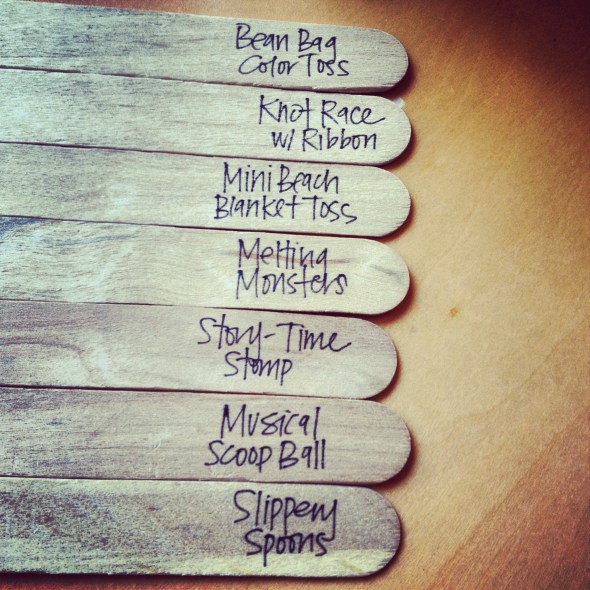 Bean Bag
Color Toss
Knot Race
w/ Ribbon
Mini Beach
Blanket Toss
Melting
Monsters
Story-Time
Stomp
Musical
Scoop Ball
Slippery
Spoons